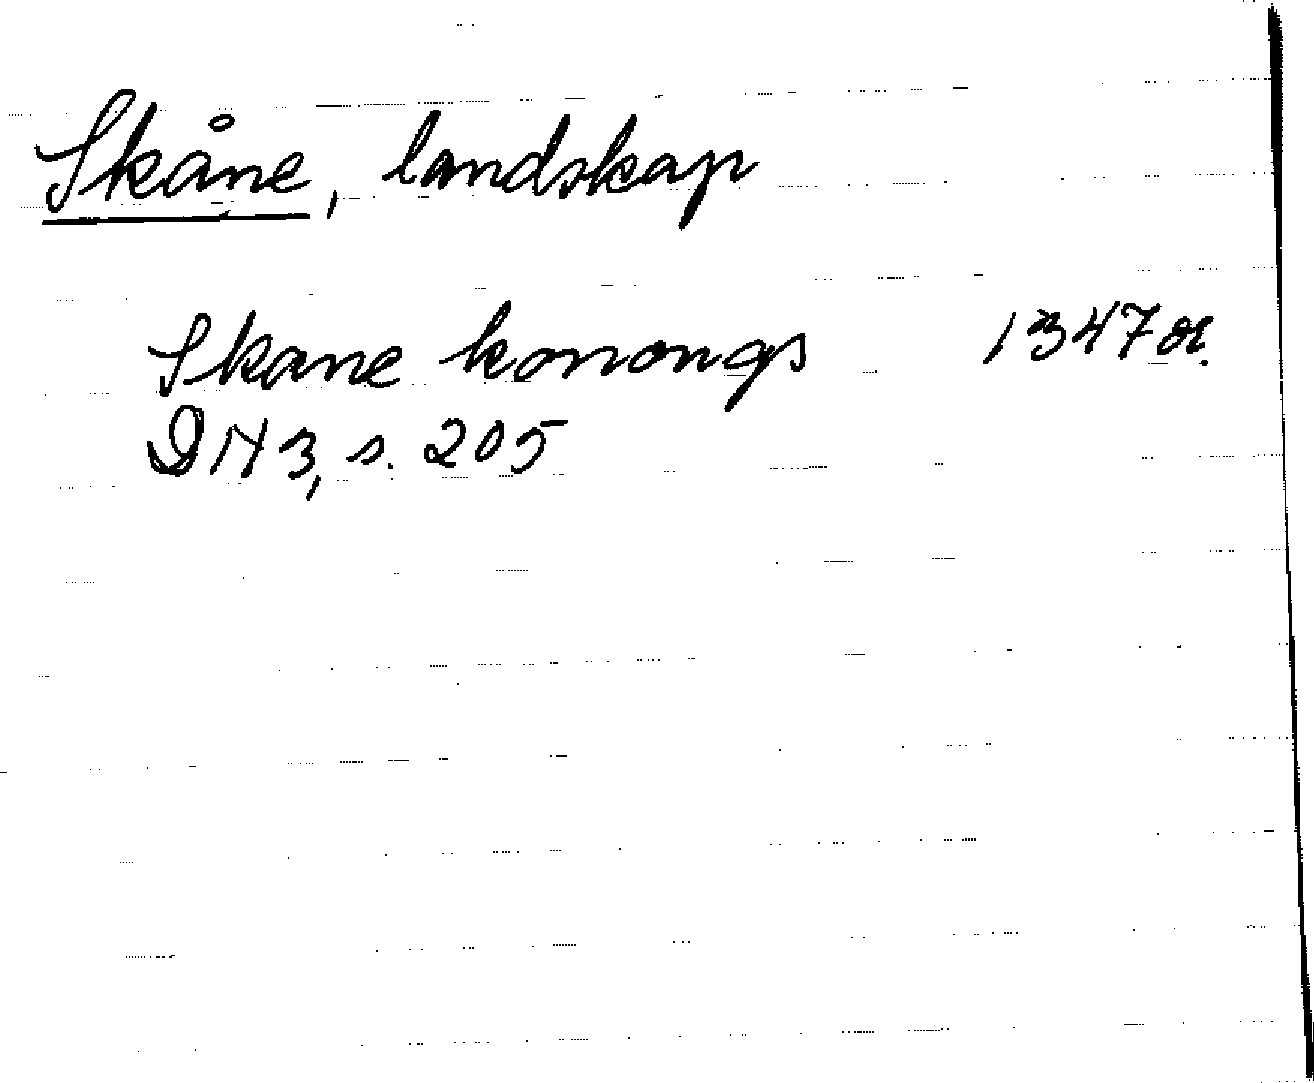 Skåne, landskap
Skane konongs 1347 or.
DN 3, s. 205